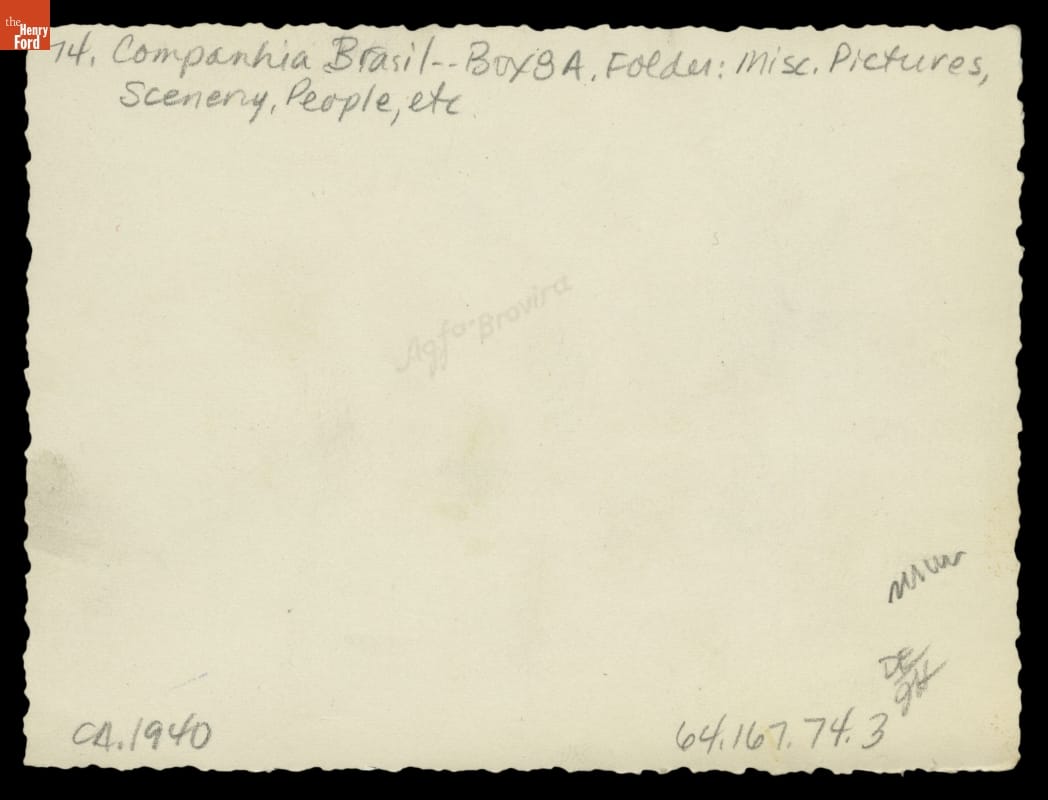 the Henry Ford
74. Companhia Brasil -- Box 8A. Folder: Misc. Pictures,
Scenery, People, etc.
Agfa-Brovira
CA. 1940
64.167.74.3